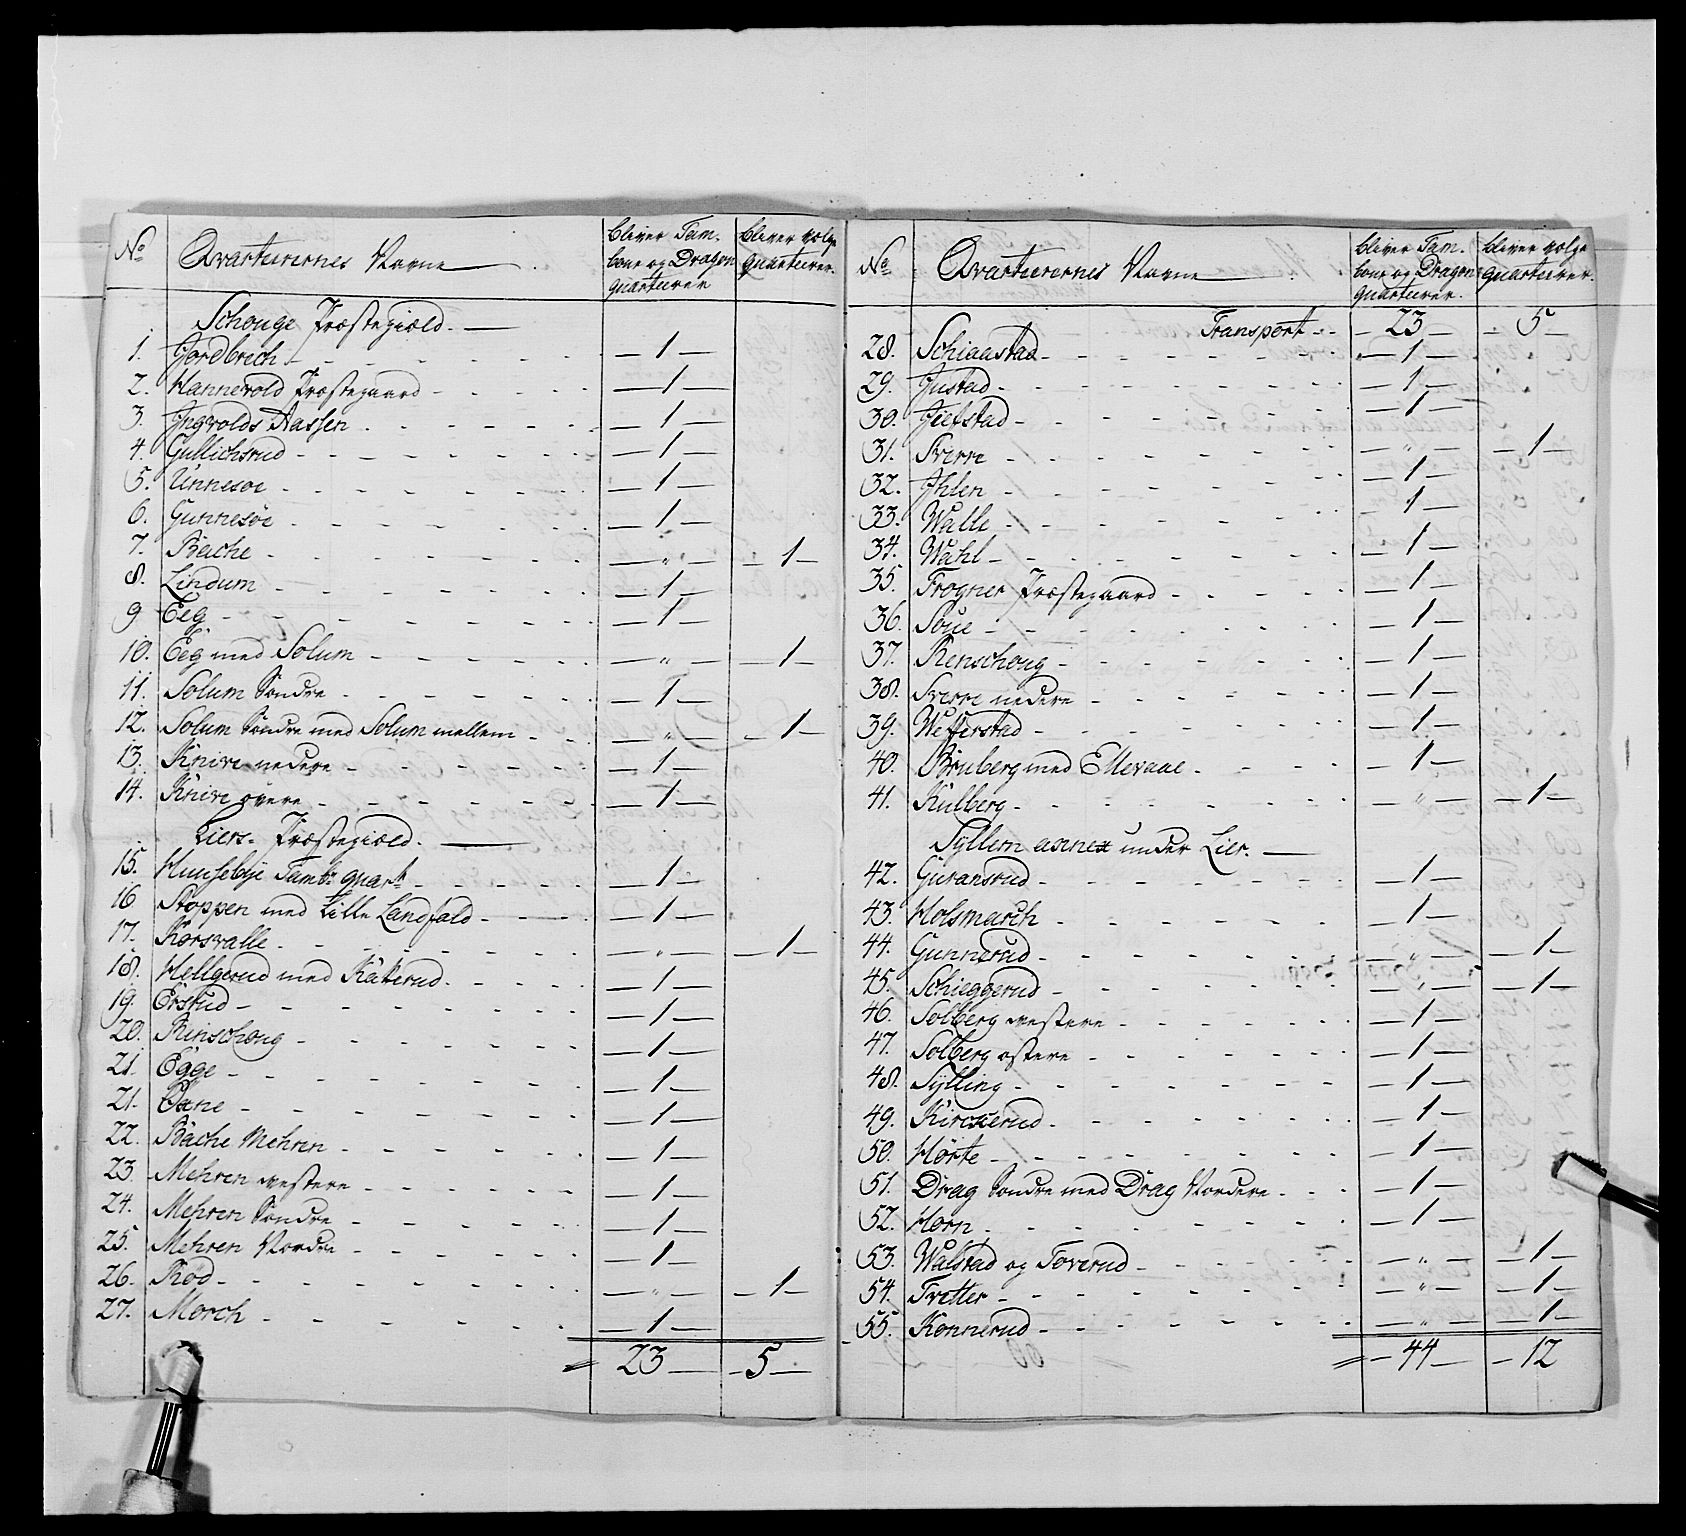 No Qvarteerernes Navne bliver Tambour og Dragon quarteerer bliver volge quarteerer.
Schouge Præstegiæld.
1. Jordbrech 1
2. Hannevold Præstegaard 1
3. Jngvolds Aassen 1
4. Gullichsrud 1
5. Unnesøe 1
6. Gunnesøe 1
7. Bache " 1
8. Lindum 1
9 Eeg 1
10. Eeg med Solum " 1
11. Solum Søndre 1
12. Solum Søndre med Solum mellem " 1
13. Knive nedere 1
14. Knive øvere 1
Liers Præstegiæld.
15. Huusebye Tamb: quart: 1
16 Stoppen med Lille Landfald 1
17. Korsvalle " 1
18. Hellgerud med Käkerud 1
19. Ersrud 1
20. Rinschoug 1
21. Egge 1
21. Oxne 1
22. Bache Mehren 1
23. Mehren vestere 1
24. Mehren Søndre 1
25. Mehren Nordre 1
26. Rød " 1
27. Morch 1
23 5
No Qvarteerernes Navne bliver Tambour og Dragon quarteerer. bliver volge quarteerer.
Transport 23 5
28. Schiaastad 1
29. Justad 1
30. Jeefstad 1
31. Sverre " 1
32. Jhlen 1
33. Walle 1
34. Wahl 1
35. Frogner Præstegaard 1
36. Søue 1
37. Renschoug 1
38. Sverre nedere 1
39. Wefferstad 1
40. Bruberg med Ellevaae 1
41. Kulberg " 1
Syllem annex under Lier.
42. Guransrud 1
43. Holsmarch 1
44. Gunnerud " 1
45. Schieggerud " 1
46. Solberg vestere 1
47. Solberg østere 1
48. Sylling 1
49. Kirckerud 1
50. Hørte 1
51. Drag Søndre med Drag Nordere 1
52. Horn 1
53. Walstad og Toverud " 1
54. Tvetter " 1
55. Konnerud " 1
44 12